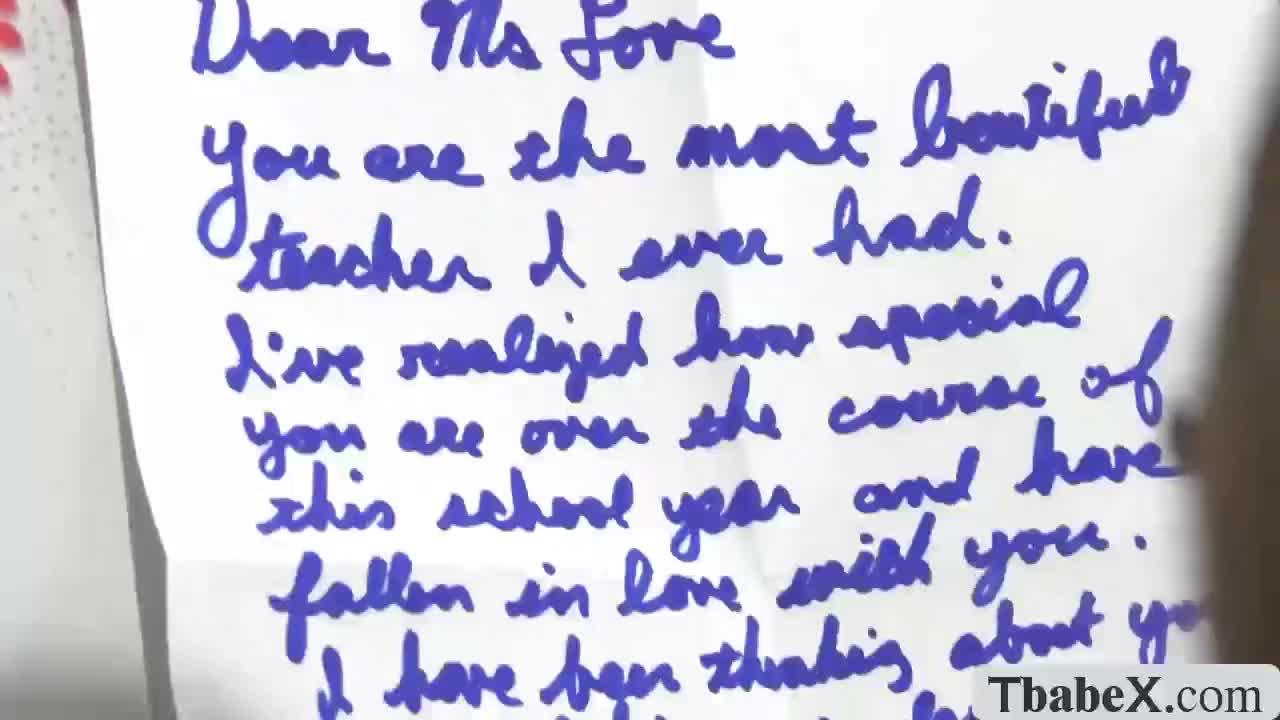 Dear Ms Love
You are the most beautiful
teacher I ever had.
I've realized how special
you are over the course of
this school year and have
fallen in love with you.
I have been thinking about
TbabeX.com